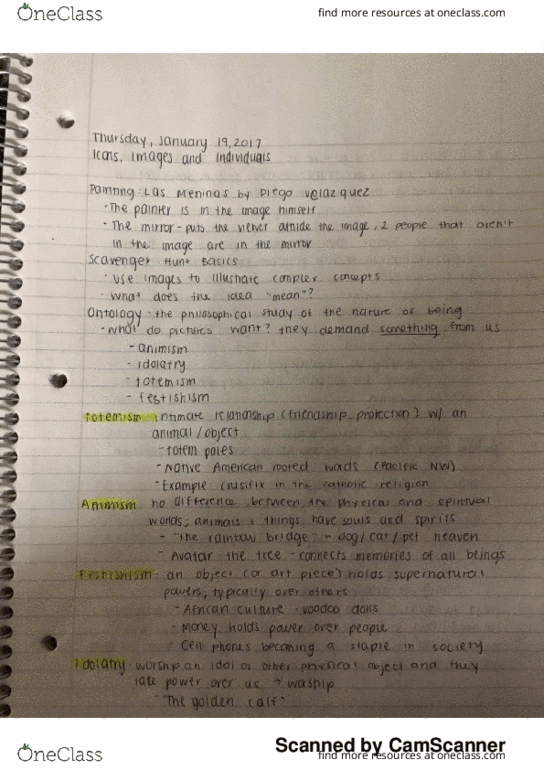 OneClass
find more resources at oneclass.com
Thursday, January 19, 2017
Icons, Images and Individuals
Painting: Las Meninas by Diego Velazquez
- The painter is in the image himself
- The mirror - puts the viewer outside the image, 2 people that aren't
in the image are in the mirror
Scavenger Hunt Basics
- use images to illustrate complex concepts
- what does the idea "mean"?
Ontology: the philosophical study of the nature of being
- what do pictures want? they demand something from us
- animism
- idolatry
- totemism
- festishism
Totemism - intimate relationship (friendship, protection) w/ an
animal/object
- totem poles
- Native American rooted (Pacific NW)
- Example crusifix in the catholic religion
Animism no difference between the physical and spiritual
worlds; animals + things have souls and spirits
- "the rainbow bridge" - dog/cat/pet heaven
- Avatar the tree - connects memories of all beings
Festishism - an object (or art piece) holds supernatural
powers, typically over others
- African culture voodoo dolls
- Money holds power over people
- Cell phones becoming a staple in society
Idolatry worship an idol or other physical object and they
power over us →
"The golden calf"
Scanned by CamScanner
OneClass
find more resources at oneclass.com